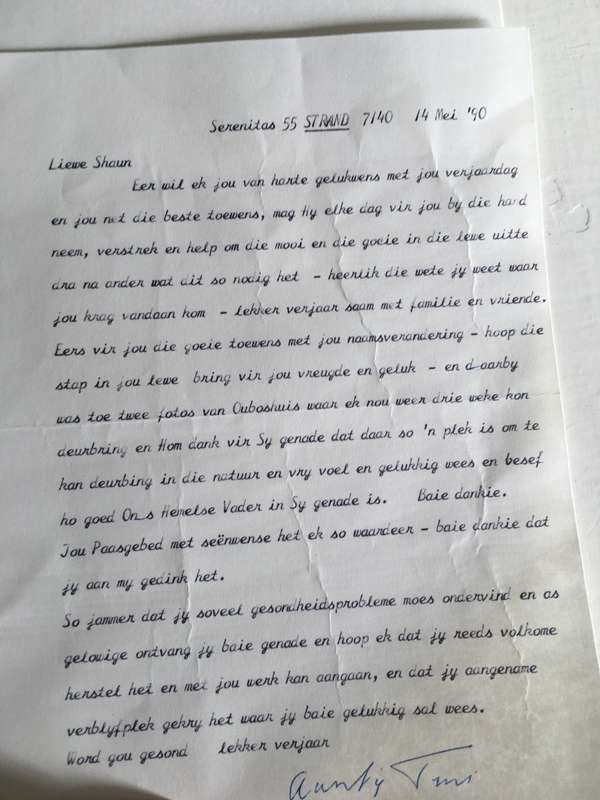 Serenitas 55 STRAND 7140 14 Mei '90
Liewe Shaun
Eer wil ek jou van harte gelukwens met jou verjaardag
en jou net die beste toewens, mag Hy elke dag vir jou by die hand
neem, verstrek en help om die mooi en die goeie in die lewe uitte
dra na ander wat dit so nodig het - heerlik die wete jy weet waar
jou krag vandaan kom - lekker verjaar saam met familie en vriende.
Eers vir jou die goeie toewens met jou naamsverandering - hoop die
stap in jou lewe bring vir jou vreugde en geluk - en daarby
was toe twee fotos van Ouboshuis waar ek nou weer drie weke kon
deurbring en Hom dank vir Sy genade dat daar so 'n plek is om te
kan deurbing in die natuur en vry voel en gelukkig wees en besef
ho goed Ons Hemelse Vader in Sy genade is. Baie dankie.
Jou Paasgebed met seënwense het ek so waardeer - baie dankie dat
jy aan my gedink het.
So jammer dat jy soveel gesondheidsprobleme moes ondervind en as
gelowige ontvang jy baie genade en hoop ek dat jy reeds volkome
herstel het en met jou werk kan aangaan, en dat jy aangename
verblyfplek gekry het waar jy baie gelukkig sal wees.
Word gou gesond lekker verjaar
Aunty